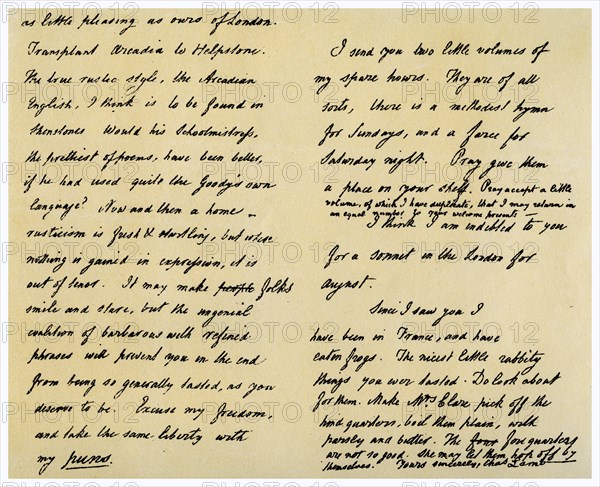 as little pleasing as ours of London.
Transplant Arcadia to Helpstone.
The true rustic style, the Arcadian
English, I think is to be found in
Shenstones Would his Schoolmistress,
the prettiest of poems, have been better,
if he had used quite the Goody's own
language? Now and then a home
rusticism is fresh & startling, but where
nothing is gained in expression, it is
out of tenor. It may make people folks
smile and stare, but the ungenial
coalition of barbarous with refined
phrases will prevent you in the end
from being so generally tasted, as you
deserve to be. Excuse my freedom,
and take the same liberty with
my puns.
I send you two little volumes of
my spare hours. They are of all
sorts, there is a methodist hymn
for Sundays, and a farce for
Saturday night. Pray give them
a place on your shelf. Pray accept a little
volume, of which I have duplicate, that I may return in
an equal number to your welcome presents —
I think I am indebted to you
for a sonnet in the London for
August.
Since I saw you I
have been in France, and have
eaten frogs. The nicest little rabbity
things you ever tasted. Do look about
for them. Make Mrs Clare pick off the
hind quarters, boil them plain, with
parsley and butter. The four fore quarters
are not so good. She may let them hop off by
themselves. Yours sincerely, Chas Lamb